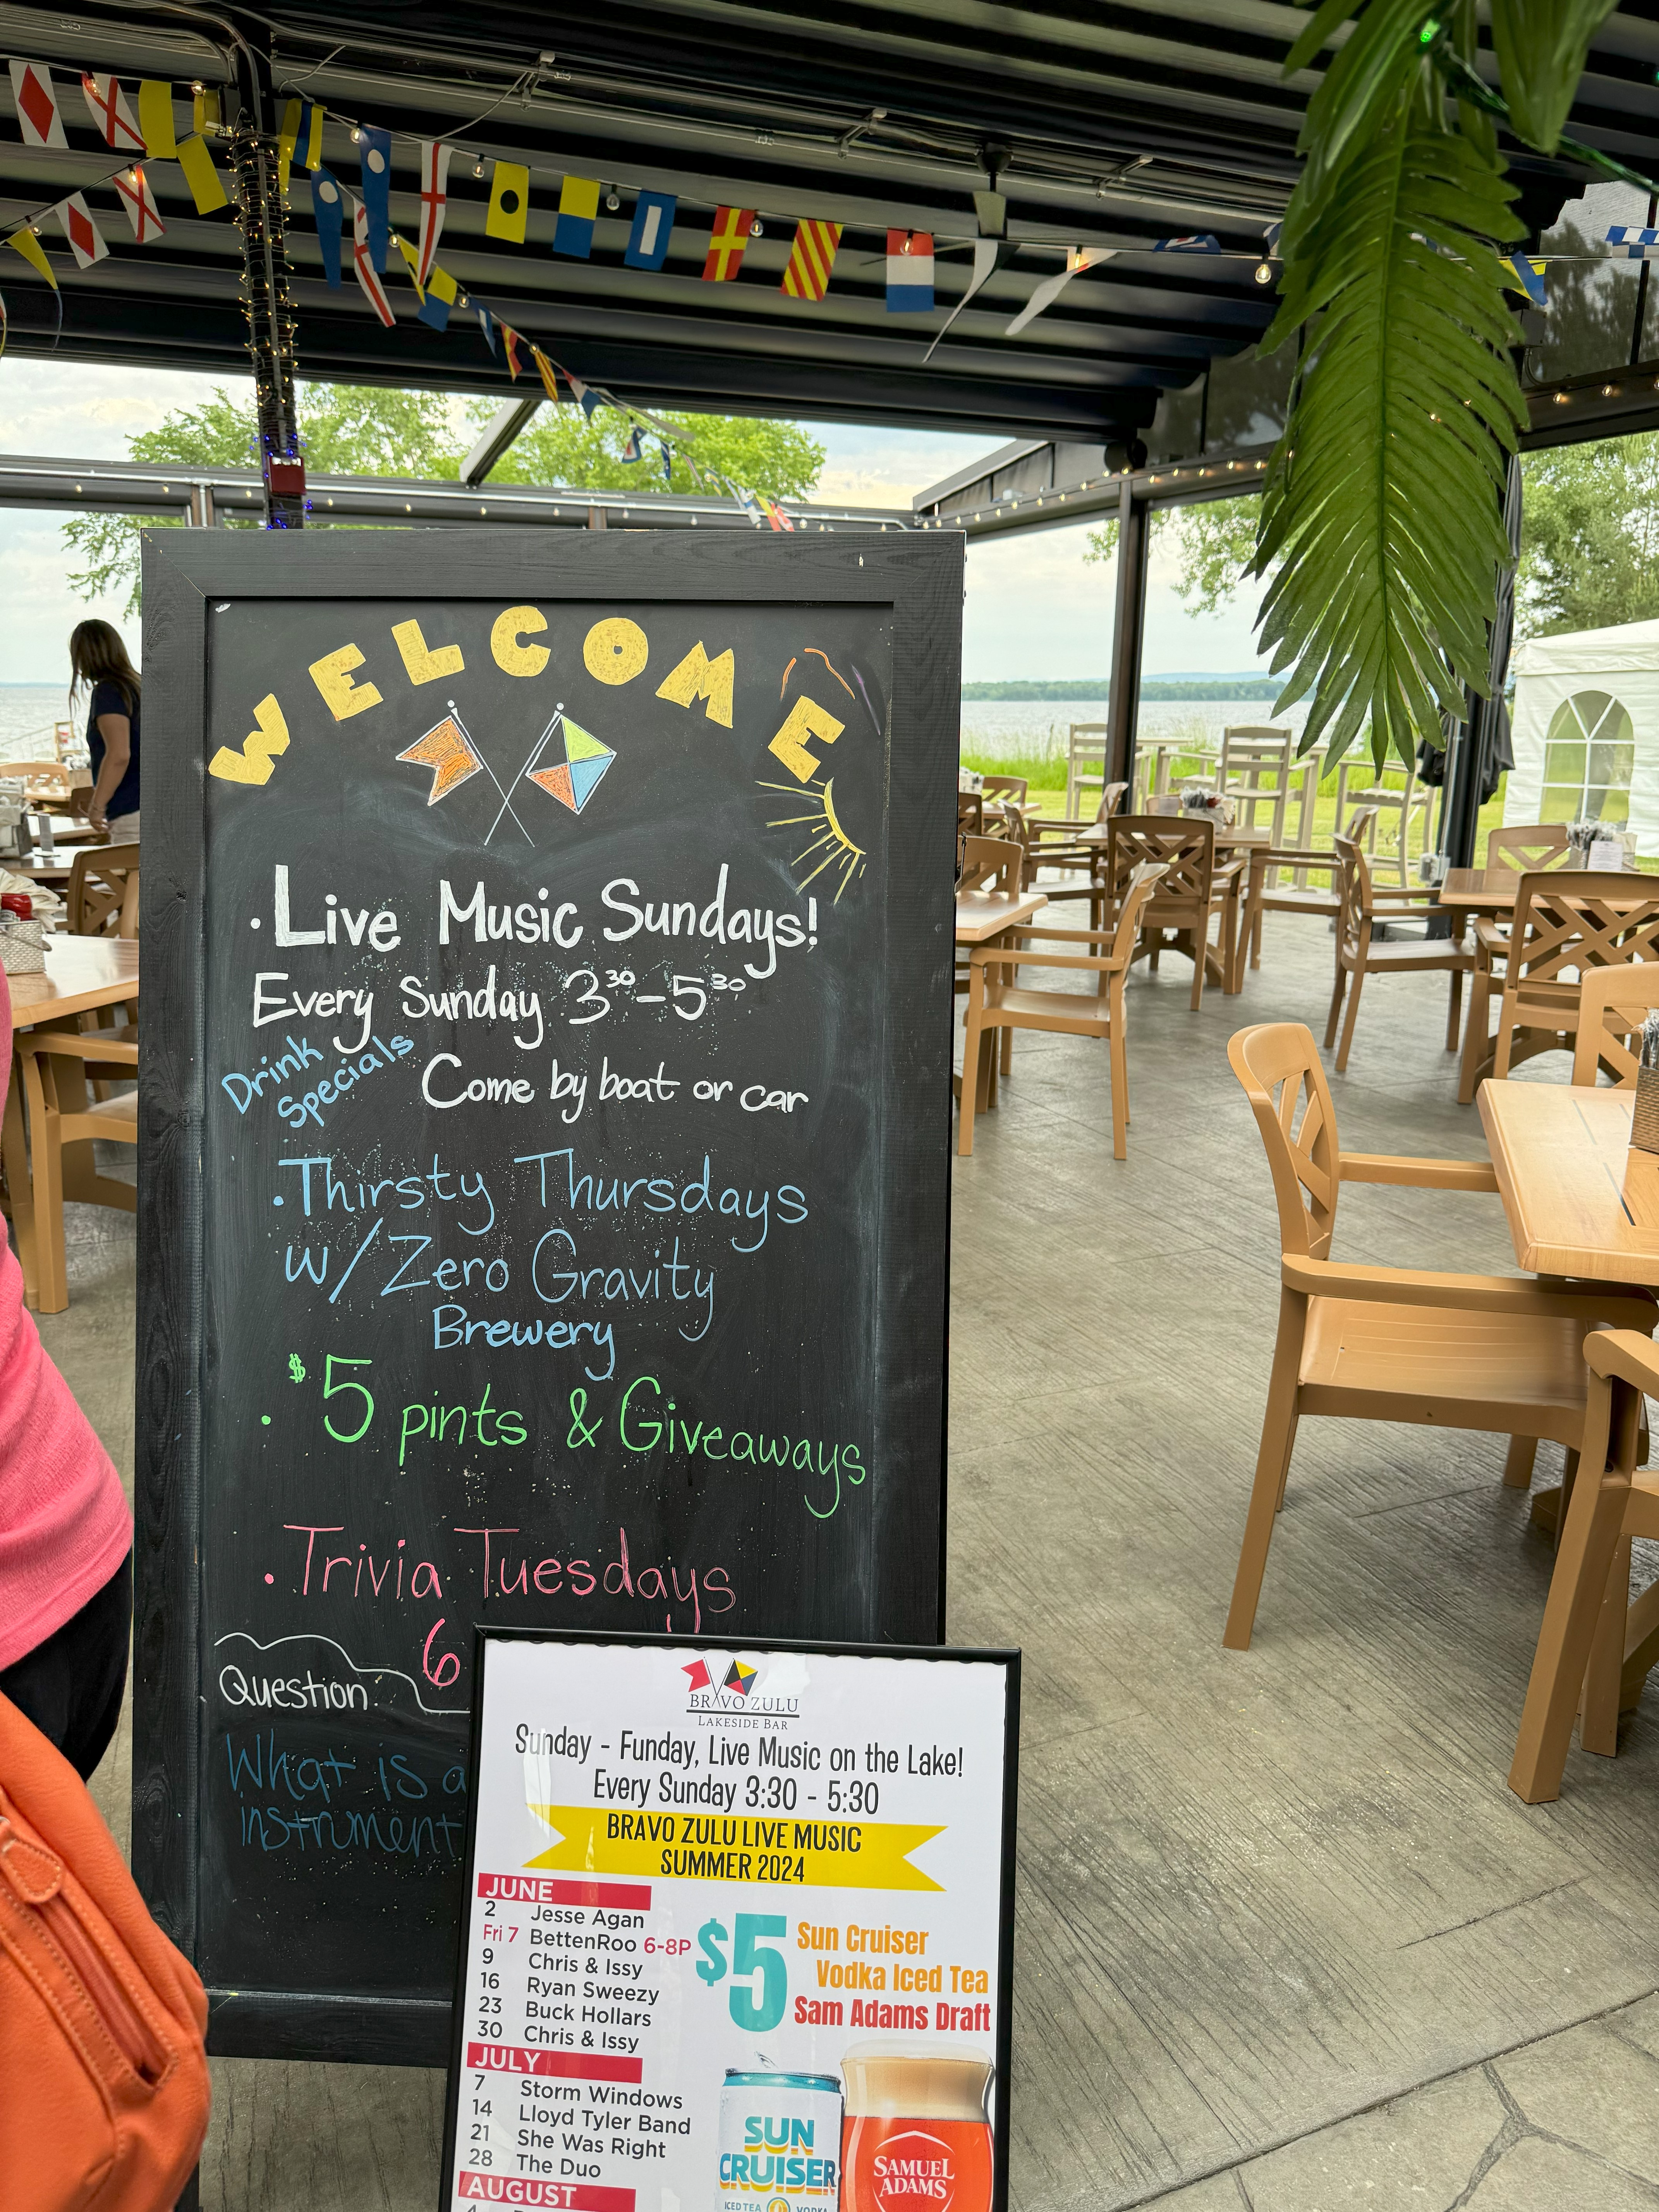 WELCOME
· Live Music Sundays!
Every Sunday 3³⁰-5³⁰
Drink
Specials
Come by boat or car
· Thirsty Thursdays
w/ Zero Gravity
Brewery
· $5 pints & Giveaways
· Trivia Tuesdays
6
Question:
What is a
instrument
BRAVO ZULU
LAKESIDE BAR
Sunday - Funday, Live Music on the Lake!
Every Sunday 3:30 - 5:30
BRAVO ZULU LIVE MUSIC
SUMMER 2024
JUNE
2 Jesse Agan
Fri 7 BettenRoo 6-8P
9 Chris & Issy
16 Ryan Sweezy
23 Buck Hollars
30 Chris & Issy
JULY
7 Storm Windows
14 Lloyd Tyler Band
21 She Was Right
28 The Duo
AUGUST
$5
Sun Cruiser
Vodka Iced Tea
Sam Adams Draft
SUN
CRUISER
ICED TEA VODKA
SAMUEL
ADAMS